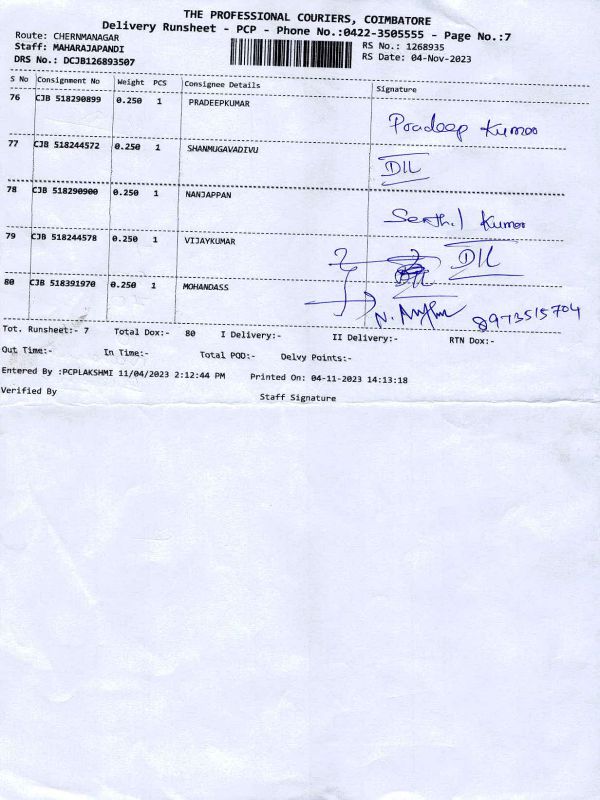 THE PROFESSIONAL COURIERS, COIMBATORE
Delivery Runsheet - PCP - Phone No.:0422-3505555 - Page No.:7
Route: CHERNMANAGAR
RS No.: 1268935
Staff: MAHARAJAPANDI
RS Date: 04-Nov-2023
DRS No.: DCJB126893507
S No Consignment No Weight PCS Consignee Details Signature
76 CJB 518290899 0.250 1 PRADEEPKUMAR
Pradeep Kumar
77 CJB 518244572 0.250 1 SHANMUGAVADIVU
D/L
78 CJB 518290900 0.250 1 NANJAPPAN
Senthil Kumar
79 CJB 518244578 0.250 1 VIJAYKUMAR
D/L
80 CJB 518391970 0.250 1 MOHANDASS
N. 8973515704
Tot. Runsheet:- 7 Total Dox:- 80 I Delivery:- II Delivery:- RTN Dox:-
Out Time:- In Time:- Total POD:- Delvy Points:-
Entered By :PCPLAKSHMI 11/04/2023 2:12:44 PM Printed On: 04-11-2023 14:13:18
Verified By Staff Signature